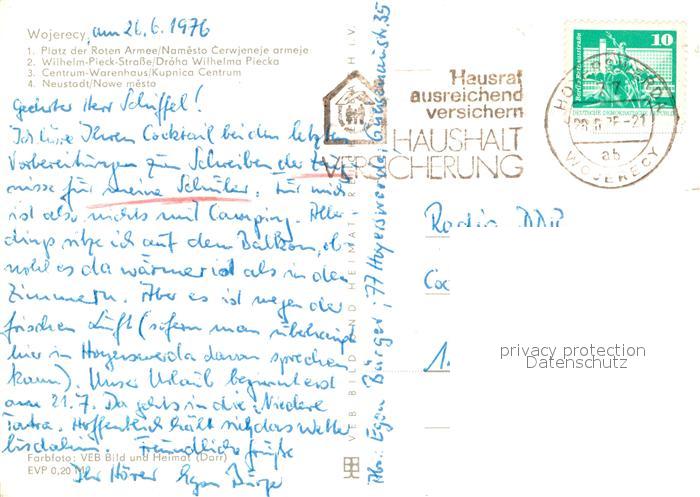 Wojerecy, am 26.6.1976
1. Platz der Roten Armee/Naměsto Čerwjeneje armeje
2. Wilhelm-Pieck-Straße/Dróha Wilhelma Piecka
3. Centrum-Warenhaus/Kupnica Centrum
4. Neustadt/Nowe město
Geehrter Herr Schiffel!
Ich höre Ihren Cocktail bei den letzten
Vorbereitungen zum Schreiben der Zeug-
nisse für meine Schüler. Für mich
ist also nichts mit Camping. Aller-
dings sitze ich auf dem Balkon, ob-
wohl es da wärmer ist als in den
Zimmern. Aber es ist wegen der
frischen Luft (sofern man überhaupt
hier in Hoyerswerda davon sprechen
kann). Unser Urlaub beginnt erst
am 21.7. Da gehts in die Niedere
Tatra. Hoffentlich hält sich das Wetter
bis dahin. Freundliche Grüße
Farbfoto: VEB Bild und Heimat (Darr)
EVP 0,20 M
Ihr Hörer Egon Bürger
VEB BILD UND HEIMAT REICHENBACH I.V.
Abs.: Egon Bürger, 77 Hoyerswerda,
35
Hausrat
ausreichend
versichern
HAUSHALT
VERSICHERUNG
HOYERSWERDA
26.6.76-21
ab
WOJERECY
10
DEUTSCHE DEMOKRATISCHE REPUBLIK
Radio DDR
Coc
1.
privacy protection
Datenschutz